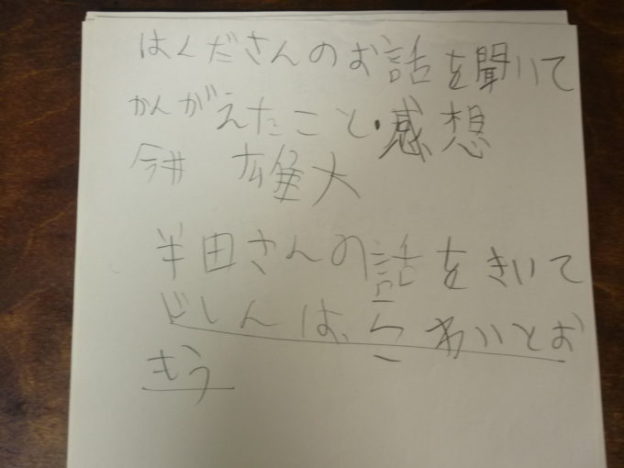 はんださんのお話を聞いて
かんがえたこと・感想
今井 雄大
半田さんの話をきいて
じしんは、こわいとお
もう